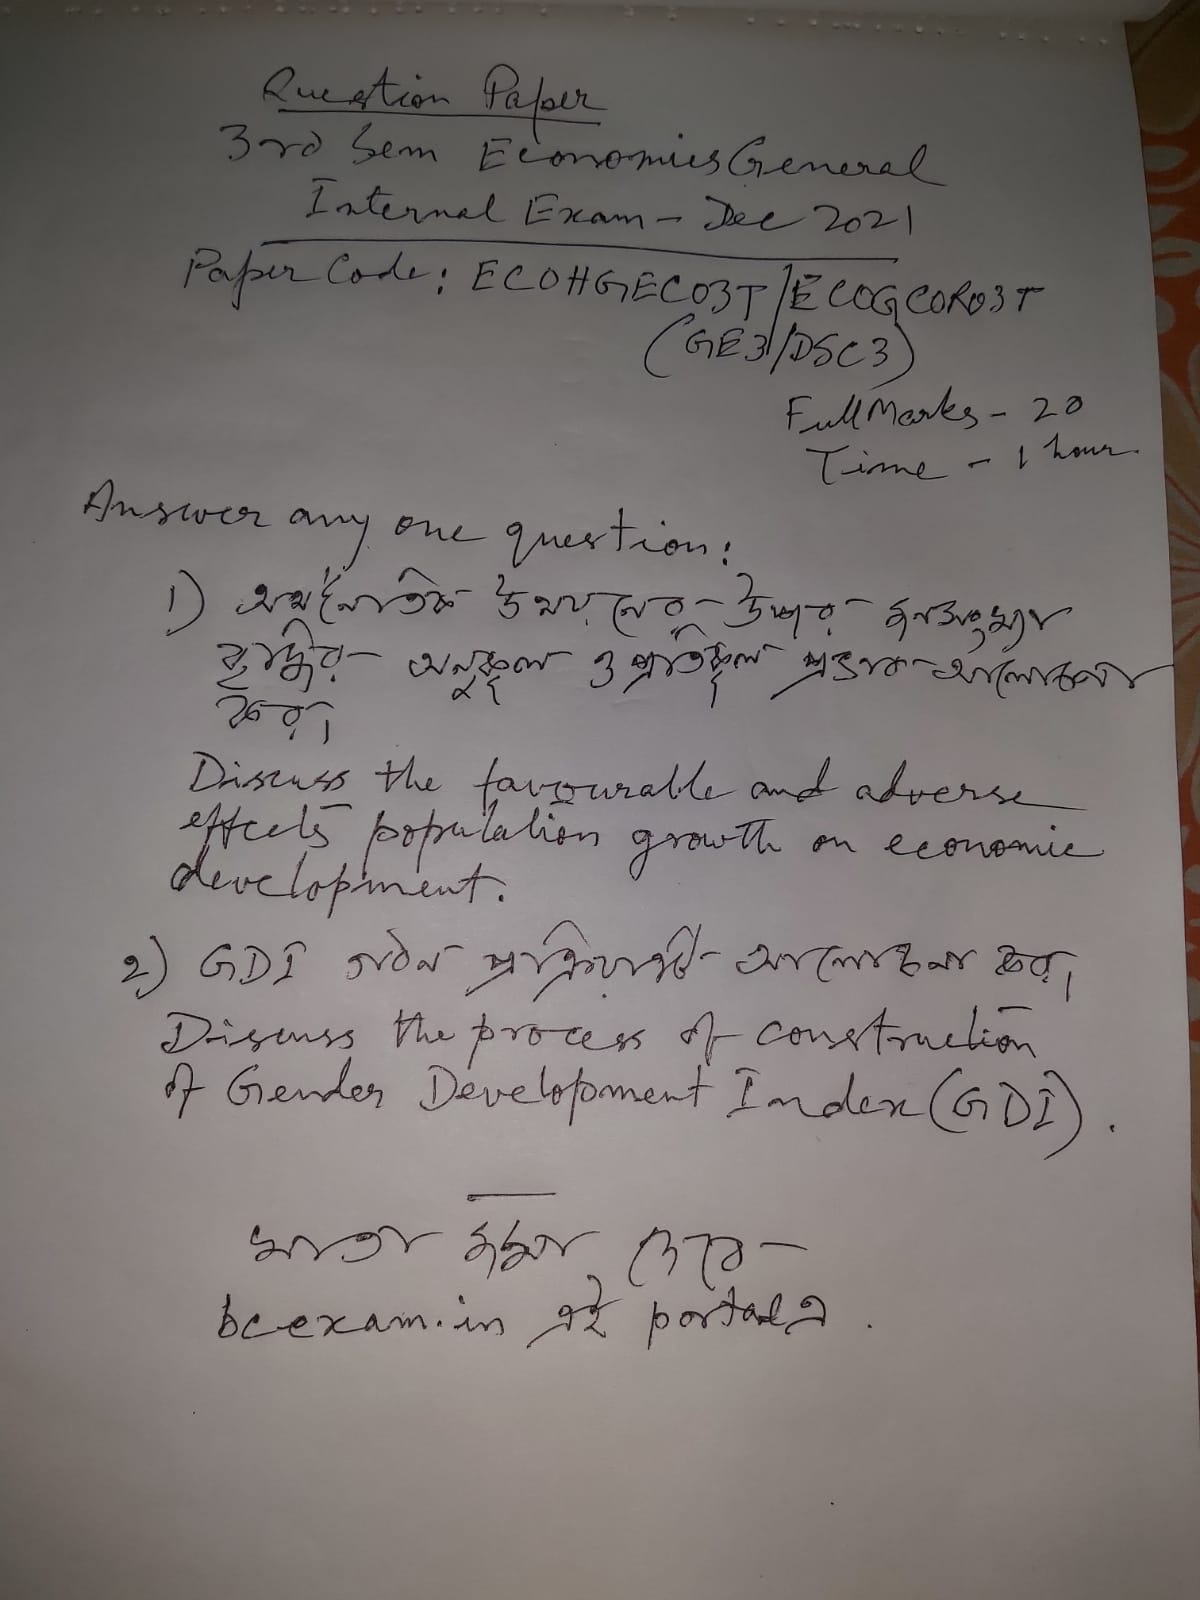 Question Paper
3rd Sem Economics General
Internal Exam - Dec 2021
Paper Code: ECOHGEC03T/ECOGCOR03T
(GE3/DSC3)
Full Marks - 20
Time - 1 hour
Answer any one question:
1) অর্থনৈতিক উন্নয়নের উপর জনসংখ্যা
বৃদ্ধির অনুকূল ও প্রতিকূল প্রভাব আলোচনা
কর।
Discuss the favourable and adverse
effects population growth on economic
development.
2) GDI গঠন প্রক্রিয়াটি আলোচনা কর।
Discuss the process of construction
of Gender Development Index (GDI).
খাতা জমা দেবে
bcexam.in এই portal এ.